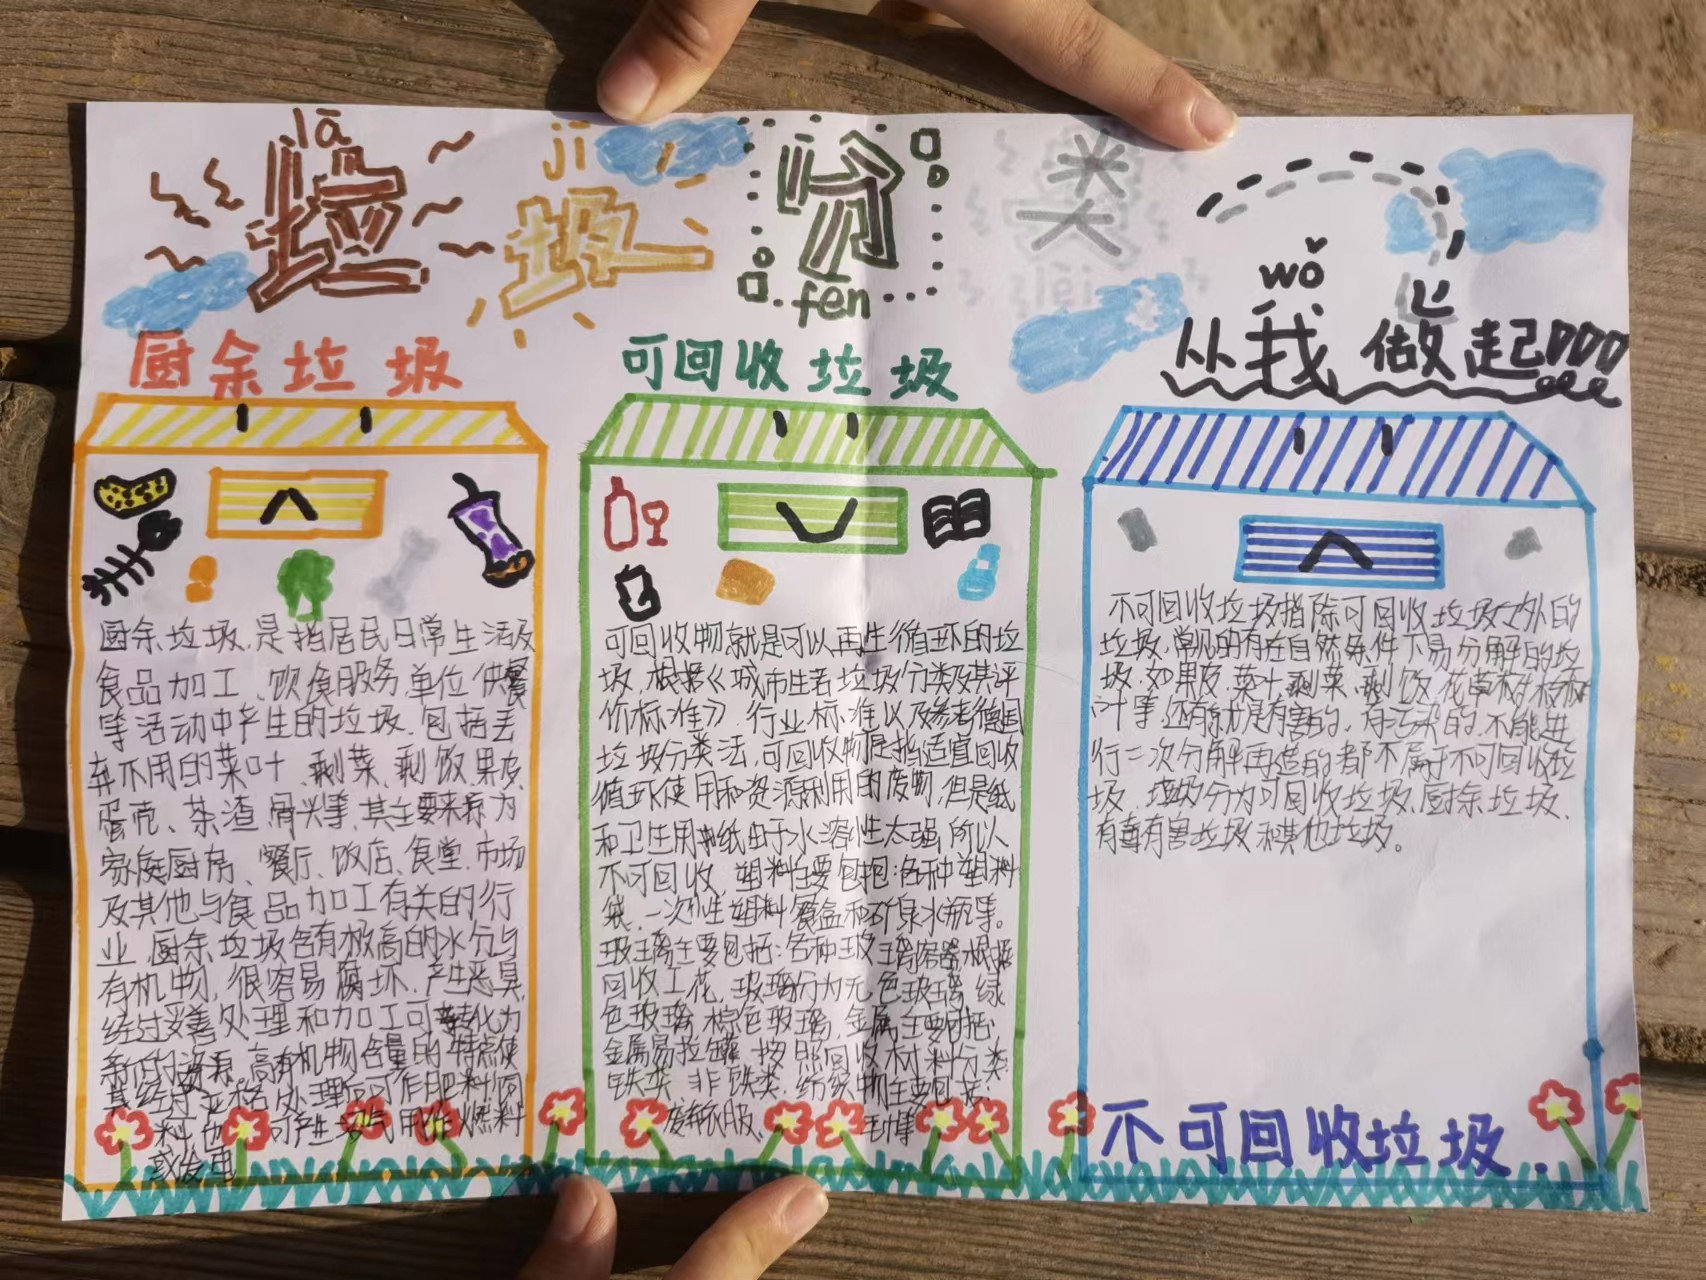 lā
jī
垃圾分类
fen
lèi
wǒ
从我做起!!!
厨余垃圾
可回收垃圾
厨余垃圾,是指居民日常生活及
食品加工、饮食服务、单位供餐
等活动中产生的垃圾,包括丢
弃不用的菜叶、剩菜、剩饭、果皮、
蛋壳、茶渣、骨头等,其主要来源为
家庭厨房、餐厅、饭店、食堂、市场
及其他与食品加工有关的行
业。厨余垃圾含有极高的水分与
有机物,很容易腐坏,产生恶臭,
经过妥善处理和加工可转化为
新的资源,高有机物含量的特点使
其经过严格处理后可作肥料、饲
料,也可产生沼气用作燃料
或发电
可回收物就是可以再生循环的垃
圾,根据《城市生活垃圾分类及其评
价标准》行业标准以及参考德国
垃圾分类法,可回收物是指适宜回收
循环使用和资源利用的废物,但是纸
和卫生用纸由于水溶性太强,所以
不可回收,塑料主要包括:各种塑料
袋、一次性塑料餐盒和矿泉水瓶等。
玻璃主要包括:各种玻璃容器,根据
回收工花,玻璃分为无色玻璃、绿
色玻璃、棕色玻璃,金属主要包括:
金属易拉罐,按照回收材料分类:
铁类、非铁类,纺织物主要包括:
废弃衣服、毛巾等
不可回收垃圾指除可回收垃圾之外的
垃圾,常见的有在自然条件下易分解的垃
圾,如果皮、菜叶、剩菜、剩饭、花草树枝树
叶等,还有就是有害的,有污染的,不能进
行二次分解再造的都不属于不可回收垃
圾,垃圾分为可回收垃圾、厨余垃圾、
有毒有害垃圾和其他垃圾。
不可回收垃圾.